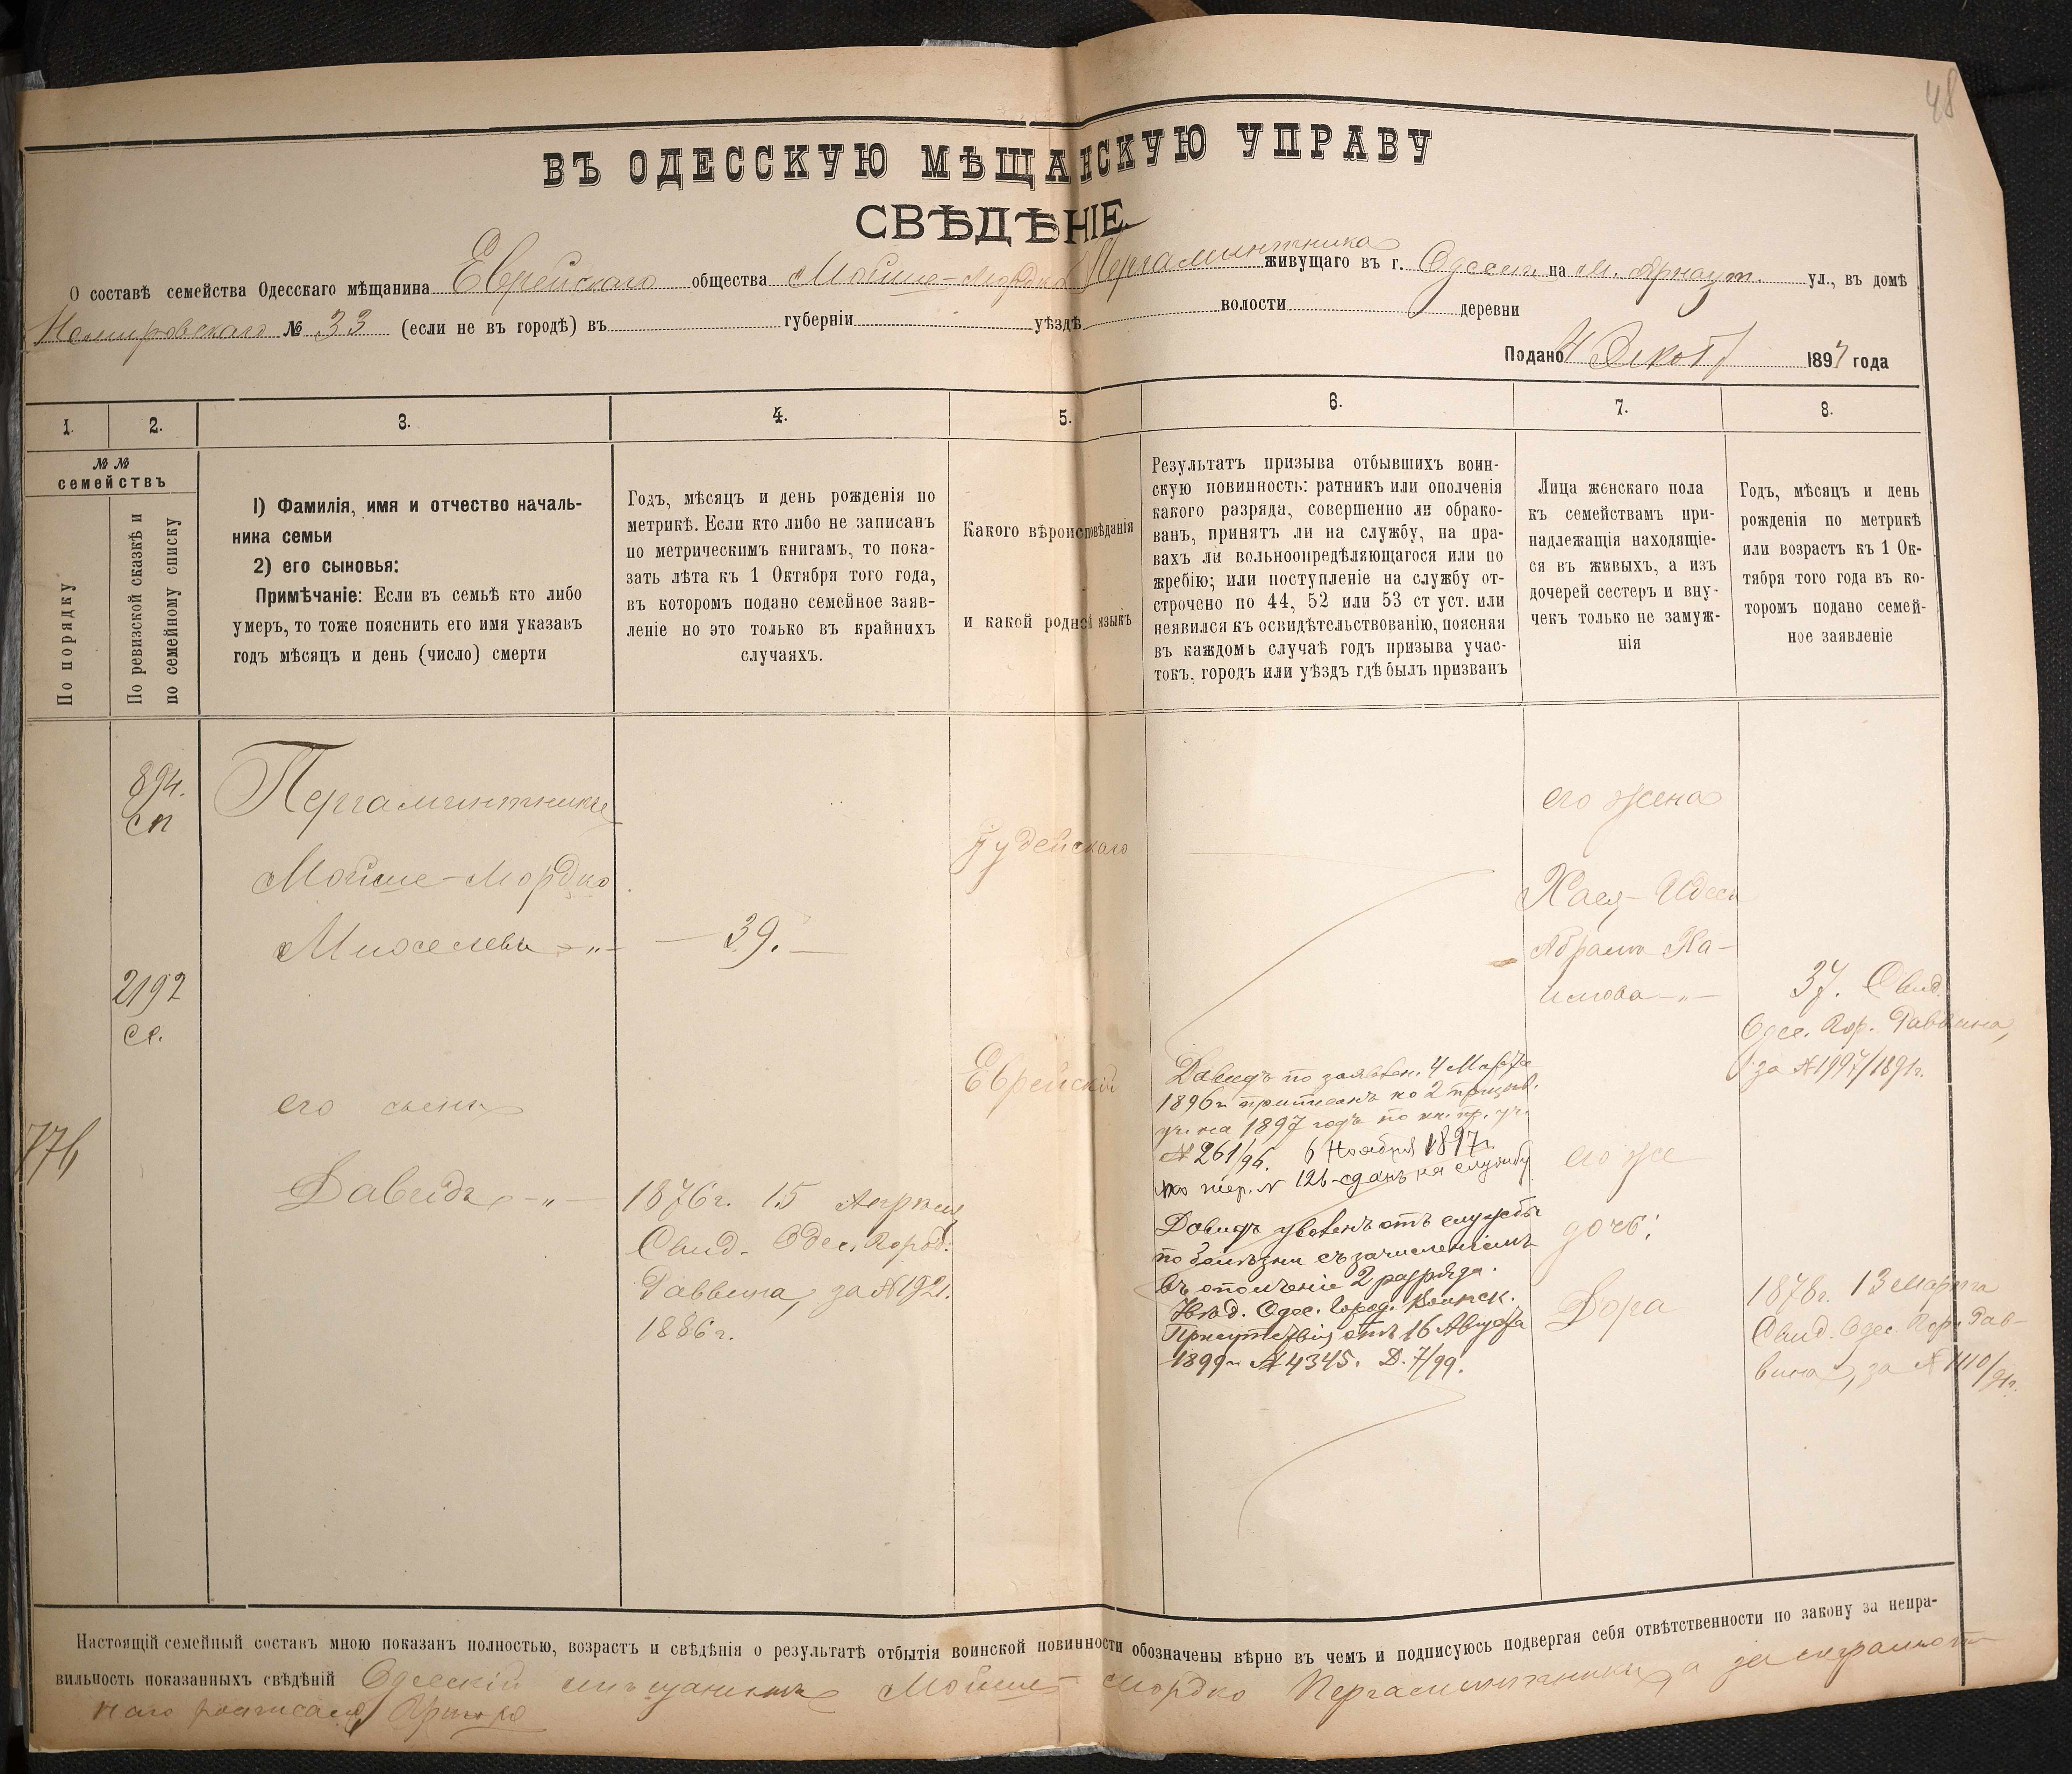 48
ВЪ ОДЕССКУЮ МѢЩАНСКУЮ УПРАВУ
СВѢДѢНІЕ
О составѣ семейства Одесскаго мѣщанина Еврейскаго общества Мойше-Мордко Пергаминтника живущаго въ г. Одессѣ на М. Арнаут. ул., въ домѣ
№ 33 (если не въ городѣ) въ губерніи уѣздѣ волости деревни
Подано 4 1897 года
1. 2. 3. 4. 5. 6. 7. 8.
№№ семействъ
По порядку
По ревизской сказкѣ и
по семейному списку
1) Фамилія, имя и отчество началь-
ника семьи
2) его сыновья:
Примѣчаніе: Если въ семьѣ кто либо
умеръ, то тоже пояснить его имя указавъ
годъ мѣсяцъ и день (число) смерти
Годъ, мѣсяцъ и день рожденія по
метрикѣ. Если кто либо не записанъ
по метрическимъ книгамъ, то пока-
зать лѣта къ 1 Октября того года,
въ которомъ подано семейное заяв-
леніе но это только въ крайнихъ
случаяхъ.
Какого вѣроисповѣданія
и какой родной языкъ
Результатъ призыва отбывшихъ воин-
скую повинность: ратникъ или ополченія
какого разряда, совершенно ли обрако-
ванъ, принятъ ли на службу, на пра-
вахъ ли вольноопредѣляющагося или по
жребію; или поступленіе на службу от-
строчено по 44, 52 или 53 ст уст. или
неявился къ освидѣтельствованію, поясняя
въ каждомъ случаѣ годъ призыва учас-
токъ, городъ или уѣздъ гдѣ былъ призванъ
Лица женскаго пола
къ семействамъ при-
надлежащія находящіе-
ся въ живыхъ, а изъ
дочерей сестеръ и вну-
чекъ только не замуж-
нія
Годъ, мѣсяцъ и день
рожденія по метрикѣ
или возрастъ къ 1 Ок-
тября того года въ ко-
торомъ подано семей-
ное заявленіе
776
894.
сп
2192
Пергаминтникъ
Мойше-Мордко
его сынъ
Давидъ -"-
— 39. —
1876 г. 15 Апрѣля
Свид. Одес. Город.
Раввина, за № 1921.
1886 г.
Іудейскаго
Еврейскій
Давидъ по заявлен. 4 Марта
1896 г. приписанъ ко 2 призыв.
уч. на 1897 годъ по кн. пр. уч.
№ 261/96. 6 Ноября 1897 г.
по жер. № 126 сданъ на службу
Давидъ уволенъ отъ службы
по болѣзни съ зачисленіемъ
въ ополченіе 2 разряда.
Увѣд. Одес. Город. Воинск.
Присутствія отъ 16 Августа
1899 г. № 4345. Д. 7/99.
его жена
Хая-Идеса
его же
дочь:
Дора
37. Свид.
Одес. Гор. Раввина,
за № 1997/1891 г.
1878 г. 13 Марта
Свид. Одес. Гор. Рав-
вина, за № 1110/91 г.
Настоящій семейный составъ мною показанъ полностью, возрастъ и свѣдѣнія о результатѣ отбытія воинской повинности обозначены вѣрно въ чемъ и подписуюсь подвергая себя отвѣтственности по закону за непра-
вильность показанныхъ свѣдѣній Одесскій мѣщанинъ Мойше-Мордко Пергаминтникъ, а за неграмот-
наго росписался